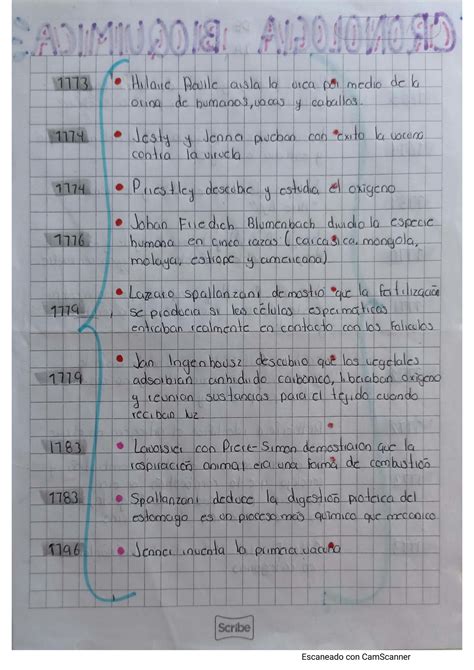 CRONOLOGIA BIOQUIMICA
1773 • Hilaire Roille aisla la urea por medio de la
orina de humanos, vacas y caballos.
1774 • Jesty y Jenna prueban con exito la vacuna
contra la viruela
1774 • Priestley descubre y estudia el oxigeno
• Johan Friedich Blumenbach dividio la especie
1776 humana en cinco razas (caucasica, mongola,
malaya, etiope y americana)
• Lazzaro spallanzani demostro que la fertilización
1779 se producia si los células espermáticas
entraban realmente en contacto con los foliculos
• Jan Ingenhousz descubrio que los vegetales
1779 adsorbian anhidrido carbónico, liberaban oxigeno
y reunion sustancias para el tejido cuando
recibian luz
1783 • Lavoisier con Piere-Simon demostraron que la
respiración animal era una forma de combustión
1783 • Spallanzani deduce la digestión proteica del
estomago es un proceso más quimico que mecanico
1796 • Jenner inventa la primera vacuna
Scribe
Escaneado con CamScanner